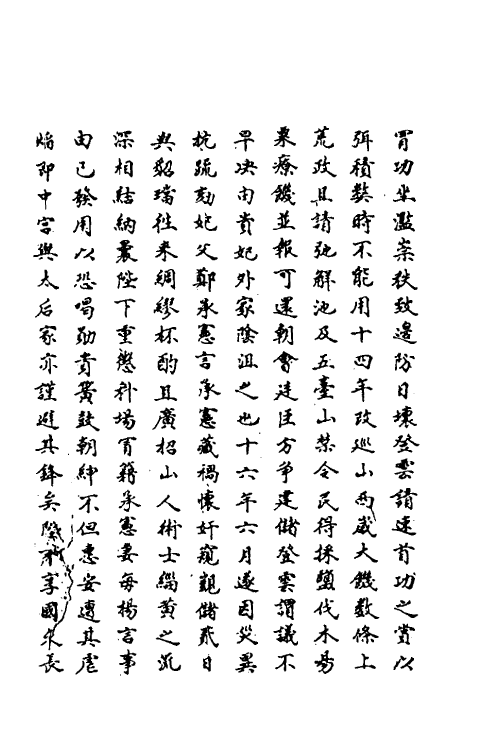 冒功坐濫崇秩致邊防日壊登雲請速首功之賞以
弭積弊時不能用十四年改巡山西歲大饑数條上
荒政且請弛解池及五臺山禁令民得採鹽伐木易
粟療饑並報可還朝會廷臣方爭建儲登雲謂議不
早决由貴妃外家陰沮之也十六年六月遂因災異
抗疏劾妃父鄭承憲言承憲藏禍懷奸窺覬儲貳日
與貂璫徃来綢繆杯酌且廣招山人術士緇黄之流
深相結納曩陛下重懲科場冐籍承憲妻每揚言事
由己發用以恐喝勛貴簧鼓朝紳不但惠安遭其虐
焰即中宫與太后家亦謹避其鋒矣陛下享國久長